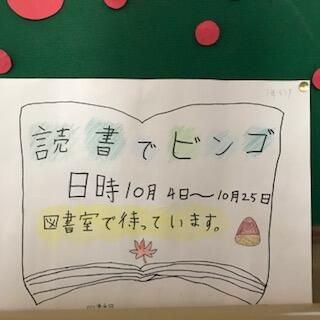 読書でビンゴ
日時10月4日～10月25日
図書室で待っています。